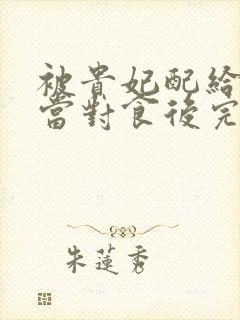 被貴妃配給
當對食後完
朱蓮秀